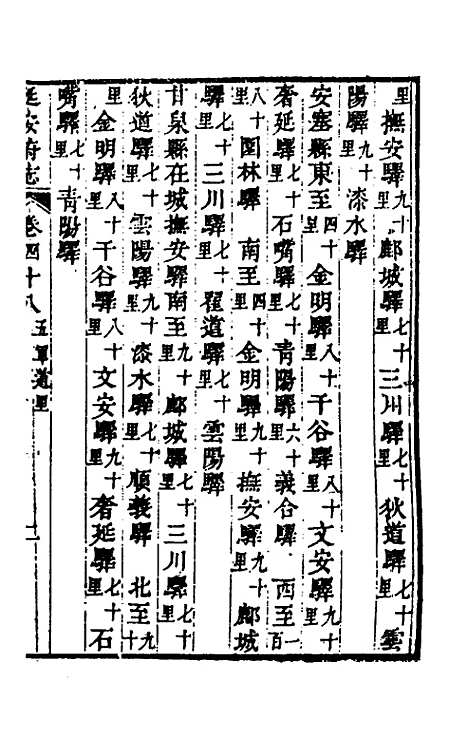 里撫安驛九十里鄜城驛七十里三川驛七十里狄道驛七十里雲
陽驛九十里漆水驛
安塞縣東至四十里金明驛八十里千谷驛八十里文安驛九十里
奢延驛七十里石嘴驛七十里青陽驛六十里義合驛　西至一百
八十里園林驛　南至四十里金明驛九十里撫安驛九十里鄜城
驛七十里三川驛七十里翟道驛七十里雲陽驛
甘泉縣在城撫安驛南至九十里鄜城驛七十里三川驛七十里
狄道驛七十里雲陽驛九十里漆水驛七十里順義驛　北至九十
里金明驛八十里千谷驛八十里文安驛九十里奢延驛七十里石
嘴驛七十里青陽驛
延安府志　卷四十八　五　軍道里　二